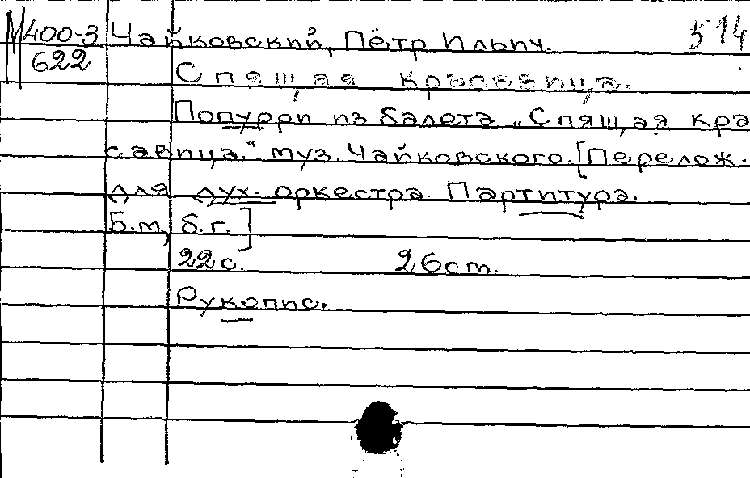 М400-3 Чайковский, Пётр Ильич. 514
622
Спящая красавица.
Попурри из балета „Спящая кра
савица." муз. Чайковского. [Перелож.
для дух. оркестра Партитура.
Б.м, б.г.]
22с. 26 ст.
Рукопис.